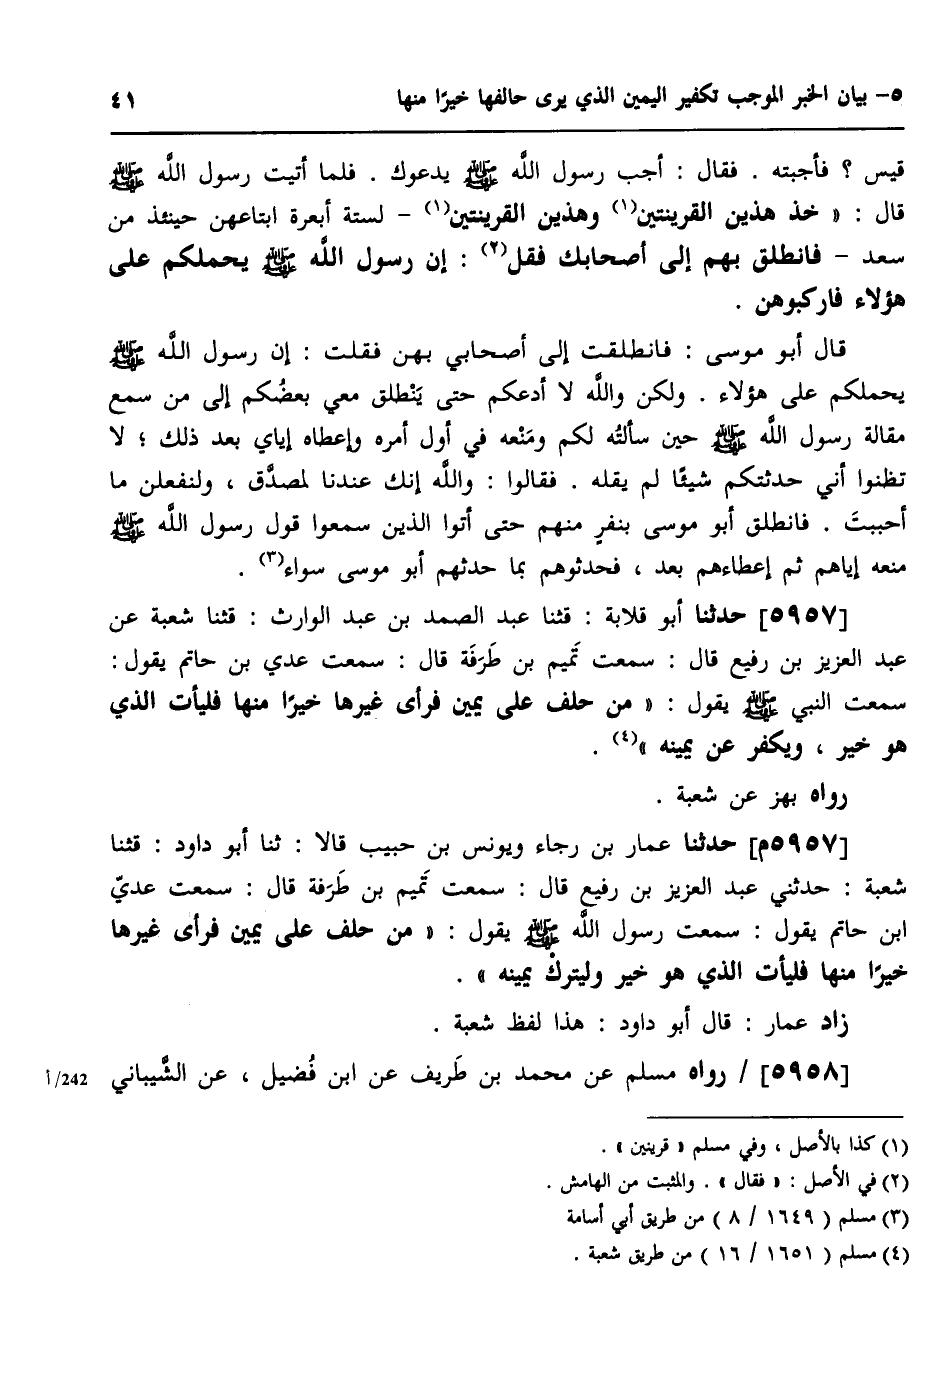 ٥- بيان الخبر الموجب تكفير اليمين الذي يرى حالفها خيرًا منها ٤١
قيس ؟ فأجبته . فقال : أجب رسول اللَّه ﷺ يدعوك . فلما أتيت رسول اللَّه ﷺ
قال : « خذ هذين القرينتين(١) وهذين القرينتين(١) – لستة أبعرة ابتاعهن حينئذ من
سعد – فانطلق بهم إلى أصحابك فقل(٢) : إن رسول اللَّه ﷺ يحملكم على
هؤلاء فاركبوهن .
قال أبو موسى : فانطلقت إلى أصحابي بهن فقلت : إن رسول اللَّه ﷺ
يحملكم على هؤلاء . ولكن واللَّه لا أدعكم حتى يَنْطلق معي بعضُكم إلى من سمع
مقالة رسول اللَّه ﷺ حين سألتُه لكم ومَنْعه في أول أمره وإعطاه إياي بعد ذلك ؛ لا
تظنوا أني حدثتكم شيئًا لم يقله . فقالوا : واللَّه إنك عندنا لمصدَّق ، ولنفعلن ما
أحببتَ . فانطلق أبو موسى بنفرٍ منهم حتى أتوا الذين سمعوا قول رسول اللَّه ﷺ
منعه إياهم ثم إعطاءهم بعد ، فحدثوهم بما حدثهم أبو موسى سواء(٣) .
[٥٩٥٧] حدثنا أبو قلابة : قثنا عبد الصمد بن عبد الوارث : قثنا شعبة عن
عبد العزيز بن رفيع قال : سمعت تَميم بن طَرَفَة قال : سمعت عدي بن حاتم يقول :
سمعت النبي ﷺ يقول : « من حلف على يمين فرأى غيرها خيرًا منها فليأت الذي
هو خير ، ويكفر عن يمينه »(٤) .
رواه بهز عن شعبة .
[٥٩٥٧م] حدثنا عمار بن رجاء ويونس بن حبيب قالا : ثنا أبو داود : قثنا
شعبة : حدثني عبد العزيز بن رفيع قال : سمعت تَميم بن طَرَفة قال : سمعت عديّ
ابن حاتم يقول : سمعت رسول اللَّه ﷺ يقول : « من حلف على يمين فرأى غيرها
خيرًا منها فليأت الذي هو خير وليتركْ يمينه » .
زاد عمار : قال أبو داود : هذا لفظ شعبة .
[٥٩٥٨] / رواه مسلم عن محمد بن طَريف عن ابن فُضيل ، عن الشَّيباني 242/أ
(١) كذا بالأصل ، وفي مسلم « قرينين » .
(٢) في الأصل : « فقال » . والمثبت من الهامش .
(٣) مسلم ( ١٦٤٩ / ٨ ) من طريق أبي أسامة
(٤) مسلم ( ١٦٥١ / ١٦ ) من طريق شعبة .